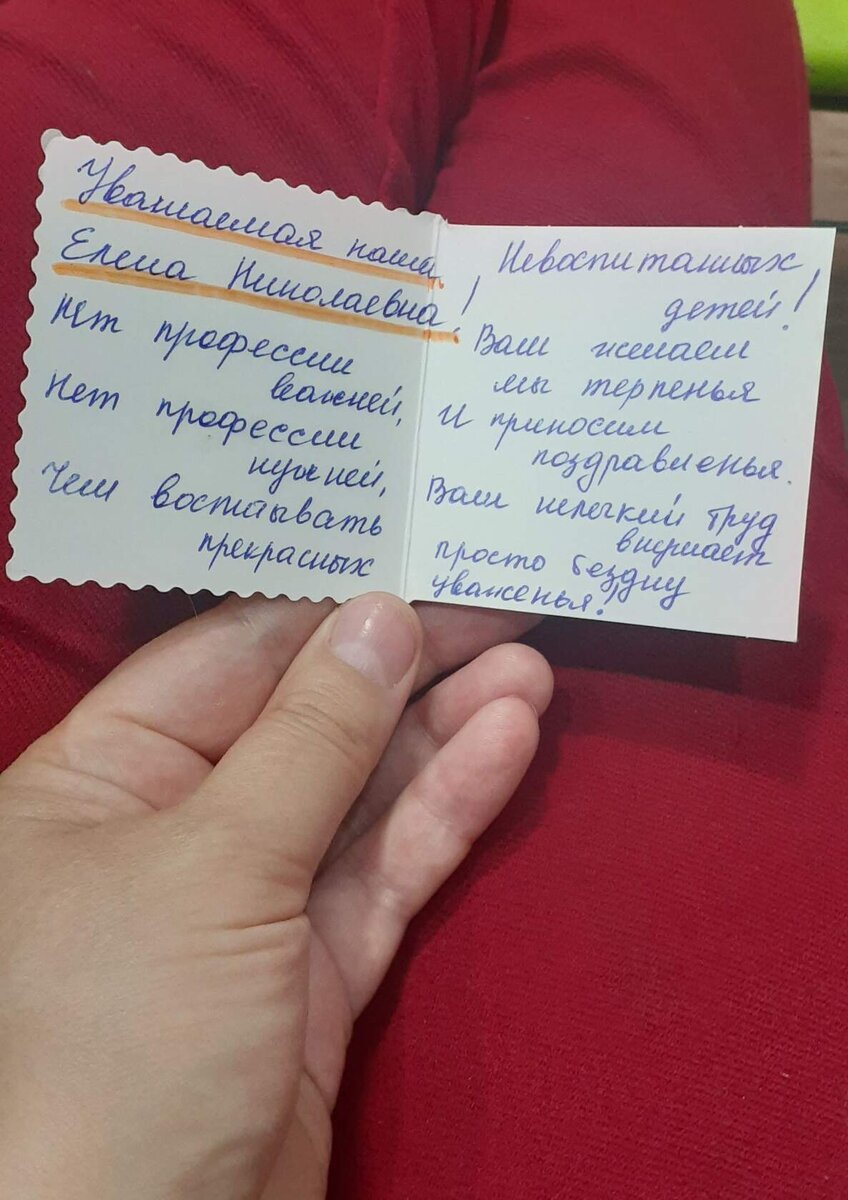 Уважаемая наша
Елена Николаевна!
Нет профессии
важней,
Нет профессии
нужней,
Чем воспитывать
прекрасных
Невоспитанных
детей!
Вам желаем
мы терпенья
И приносим
поздравленья.
Ваш нелегкий труд
внушает
просто бездну
уваженья!